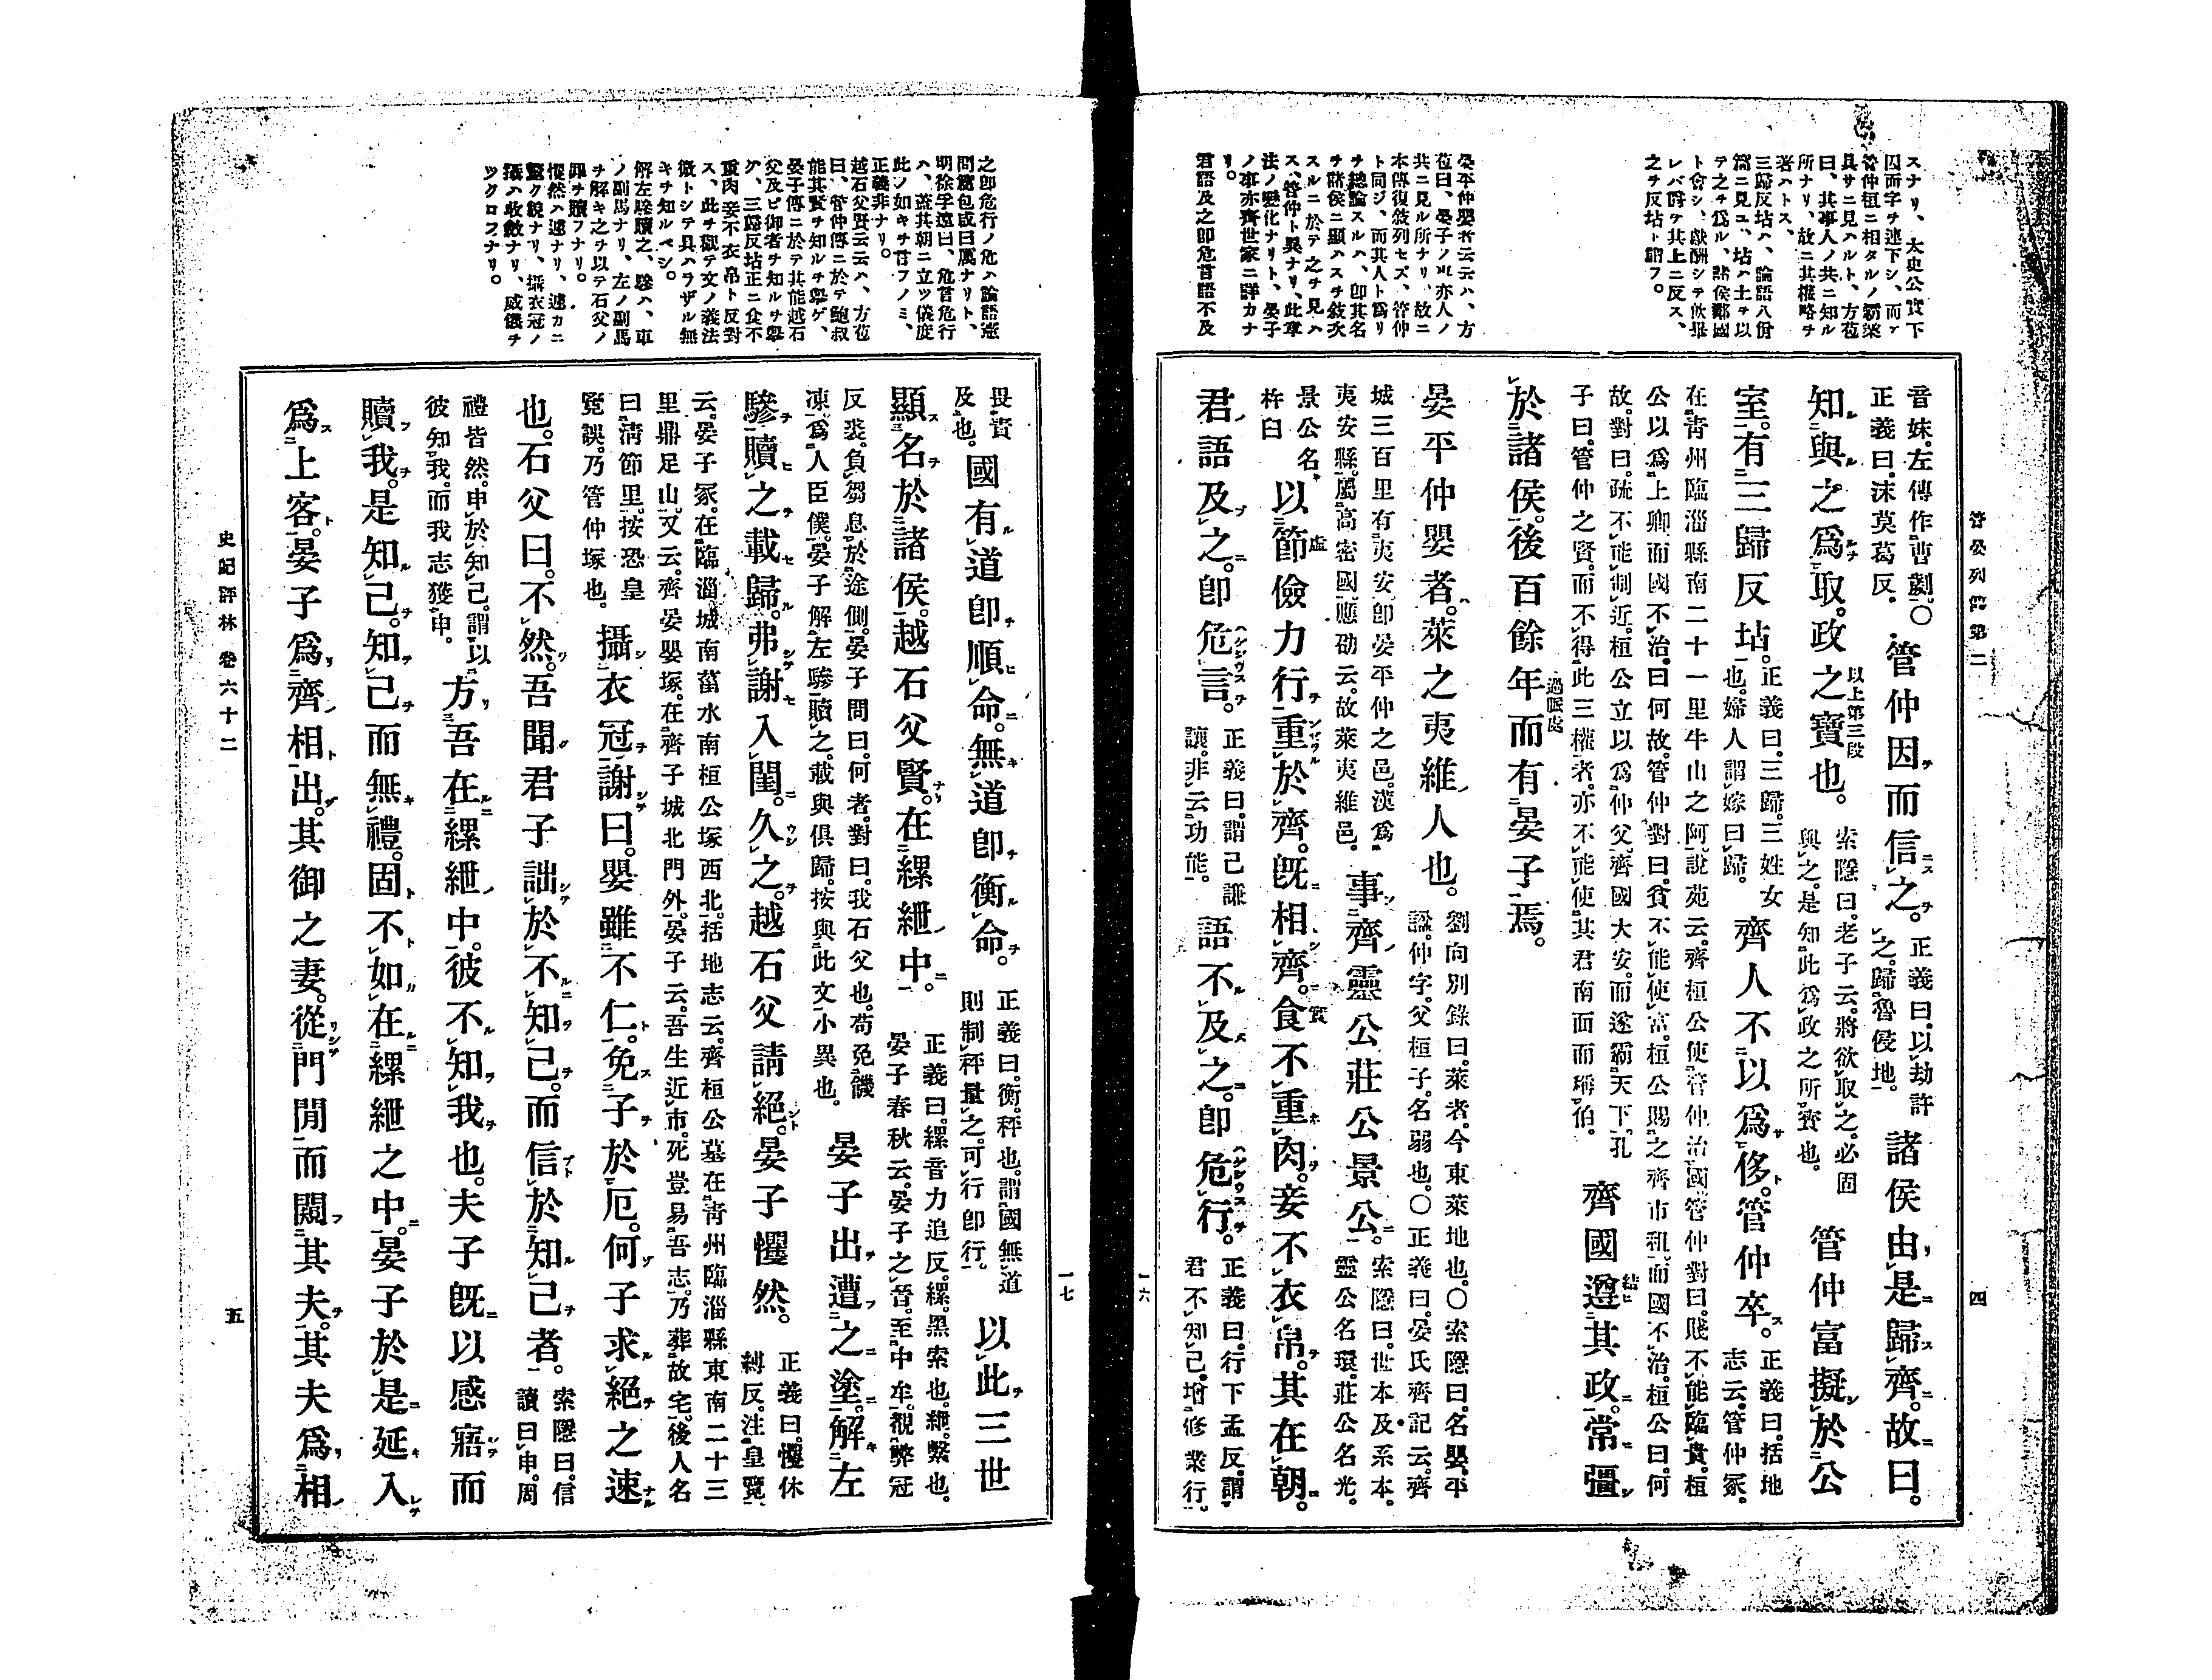 スナリ、太史公實下
因而字ヲ連下シ、而テ
管仲桓ニ相タルノ霸業
具サニ見ハルト、方苞
曰、其事人ノ共ニ知ル
所ナリ、故ニ其權略ヲ
著ハトス、
三歸反坫ハ、論語八佾
篇ニ見ユ、坫ハ土ヲ以
テ之ヲ爲ル、諸侯鄰國
ト會シ、獻酬シテ飲畢
レバ爵ヲ其上ニ反ス、
之ヲ反坫ト謂フ。
晏平仲嬰者云云ハ、方
苞曰、晏子ノ事亦人ノ
共ニ見ル所ナリ、故ニ
本傳復敘列セズ、管仲
ト同ジ、而其人ト爲リ
ヲ總論スルハ、卽其名
ヲ諸侯ニ顯ハスヲ敘次
スルニ於テ之ヲ見ハ
ス、管仲ト異ナリ、此章
法ノ變化ナリト、晏子
ノ事亦齊世家ニ詳カナ
リ。
君語及之卽危言語不及
管晏列傳第二
四
音妹。左傳作曹劌。〇
正義曰。沫莫葛反。
管仲因而信之。
正義曰。以劫許
之。歸魯侵地。
諸侯由是歸齊。故曰。
知與之爲取。政之寶也。
以上第三段
索隱曰。老子云。將欲取之。必固
與之。是知此爲政之所寶也。
管仲富擬於公
室。有三歸反坫。
正義曰。三歸。三姓女
也。婦人謂嫁曰歸。
齊人不以爲侈。管仲卒。
正義曰。括地
志云。管仲冢。
在靑州臨淄縣南二十一里牛山之阿。說苑云。齊桓公使管仲治國。管仲對曰。賤不能臨貴。桓
公以爲上卿而國不治。曰何故。管仲對曰。貧不能使富。桓公賜之齊市租。而國不治。桓公曰。何
故。對曰。疏不能制近。桓公立以爲仲父。齊國大安。而遂霸天下。孔
子曰。管仲之賢。而不得此三權者。亦不能使其君南面而稱伯。
齊國遵其政。常彊
於諸侯。後百餘年而有晏子焉。
過脈處
晏平仲嬰者。萊之夷維人也。
劉向別錄曰。萊者。今東萊地也。〇索隱曰。名嬰。平
謚。仲字。父桓子。名弱也。〇正義曰。晏氏齊記云。齊
城三百里有夷安。卽晏平仲之邑。漢爲
夷安縣。屬高密國。應劭云。故萊夷維邑。
事齊靈公莊公景公。
索隱曰。世本及系本。
靈公名環。莊公名光。
景公名
杵臼
以節儉力行重於齊。旣相齊。食不重肉。妾不衣帛。其在朝。
君語及之。卽危言。
正義曰。謂己謙
讓。非云功能。
語不及之。卽危行。
正義曰。行下孟反。謂
君不知己。增修業行。
一六
之卽危行ノ危ハ論語憲
問篇包咸曰厲ナリト、
明徐孚遠曰、危言危行
ハ、蓋其朝ニ立ツ儀度
此ノ如キヲ言フノミ、
正義非ナリ。
越石父賢云云ハ、方苞
曰、管仲傳ニ於テ鮑叔
能其賢ヲ知ルヲ擧ゲ、
晏子傳ニ於テ其能越石
父及ビ御者ヲ知ルヲ擧
グ、三歸反坫正ニ食不
重肉妾不衣帛ト反對
ス、此ヲ觀テ文ノ義法
徵トシテ具ハラザル無
キヲ知ルベシ。
解左驂贖之、驂ハ、車
ノ副馬ナリ、左ノ副馬
ヲ解キ之ヲ以テ石父ノ
罪ヲ贖フナリ。
懼然ハ遽ナリ、遽カニ
驚ク貌ナリ、攝衣冠ノ
攝ハ收斂ナリ、威儀ヲ
ツクロフナリ。
一七
畏責
及也。
國有道卽順命。無道卽衡命。
正義曰。衡。秤也。謂國無道
則制秤量之。可行卽行。
以此三世
顯名於諸侯。越石父賢。在縲紲中。
正義曰。縲音力追反。縲。黑索也。紲。繫也。
晏子春秋云。晏子之晉。至中牟。覩弊冠
反裘。負芻息於途側。晏子問曰。何者。對曰。我石父也。苟免饑
凍。爲人臣僕。晏子解左驂贖之。載與俱歸。按與此文小異也。
晏子出遭之塗。解左
驂贖之載歸。弗謝入閨。久之。越石父請絕。晏子懼然。
正義曰。懼休
縛反。注皇覽
云。晏子冢。在臨淄城南菑水南桓公塚西北。括地志云。齊桓公墓在靑州臨淄縣東南二十三
里鼎足山。又云。齊晏嬰塚。在齊子城北門外。晏子云。吾生近市。死豈易吾志。乃葬故宅。後人名
曰淸節里。按恐皇
覽誤。乃管仲塚也。
攝衣冠。謝曰。嬰雖不仁。免子於厄。何子求絕之速
也。石父曰。不然。吾聞君子詘於不知己。而信於知己者。
索隱曰。信
讀曰申。周
禮皆然。申於知己。謂以
彼知我。而我志獲申。
方吾在縲紲中。彼不知我也。夫子旣以感寤而
贖我。是知己。知己而無禮。固不如在縲紲之中。晏子於是延入
爲上客。晏子爲齊相出。其御之妻。從門閒而闚其夫。其夫爲相
史記評林 卷六十二
五